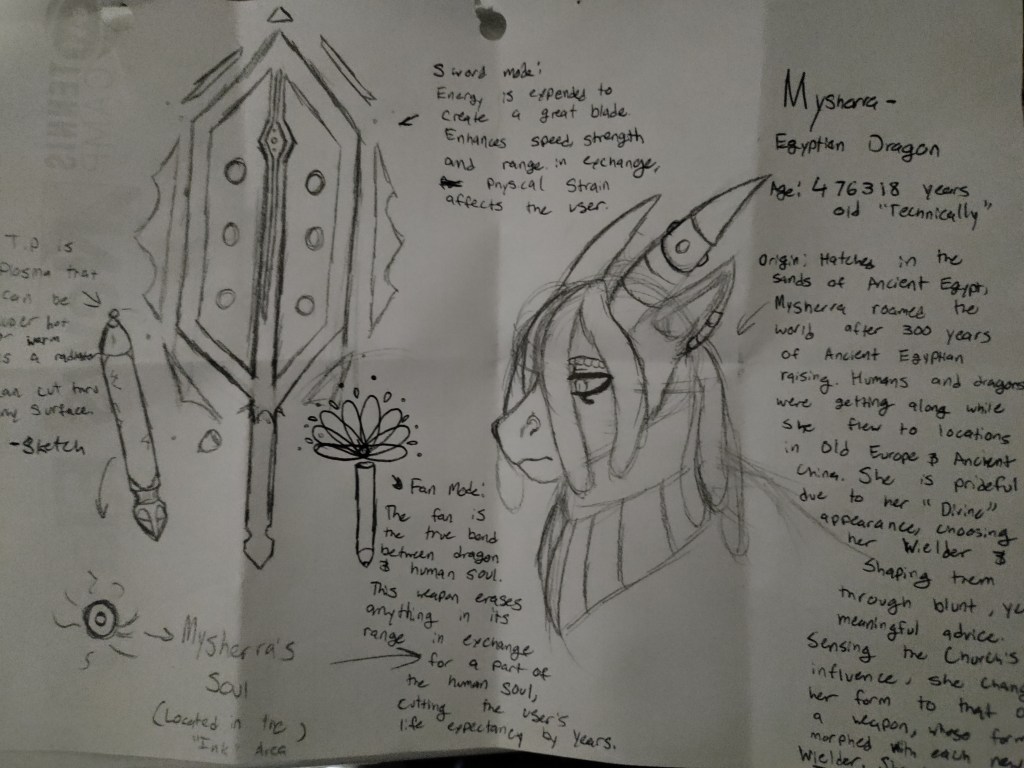 Sword mode:
Energy is expended to
create a great blade.
Enhances speed, strength
and range in exchange,
Physical Strain
affects the user.
Mysherra-
Egyptian Dragon
Age: 476318 years
old "Technically"
Origin: Hatched in the
sands of Ancient Egypt,
Mysherra roamed the
world after 300 years
of Ancient Egyptian
raising. Humans and dragons
were getting along while
she flew to locations
in Old Europe & Ancient
China. She is prideful
due to her "Divine"
appearance, choosing
her Wielder &
Shaping them
through blunt, ye
meaningful advice.
Sensing the Church's
influence, she chang
her form to that o
a weapon, whose form
morphed with each new
Wielder. She
Tip is
Plasma that
can be
uper hot
or warm
s a radiator
an cut thru
ny surface.
-Sketch
Fan Mode:
The fan is
the true bond
between dragon
& human soul.
This weapon erases
anything in its
range in exchange
for a part of
the human soul,
cutting the user's
life expectancy by years.
Mysherra's
Soul
(Located in the
"Ink" Area)
TENNIS